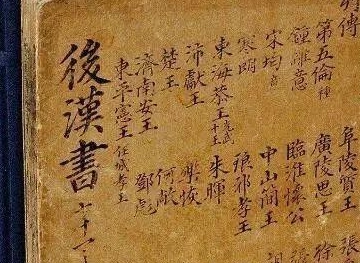 傳
第五倫種
鍾離意
宋均意
寒朗
東海恭王光武十王
沛獻王
楚王
濟南安王
東平憲王任城孝王
阜陵質王
廣陵思王
臨淮懷公
中山簡王
琅邪孝王
朱暉
樂恢
何敞
鄧彪
張
徐
後漢書